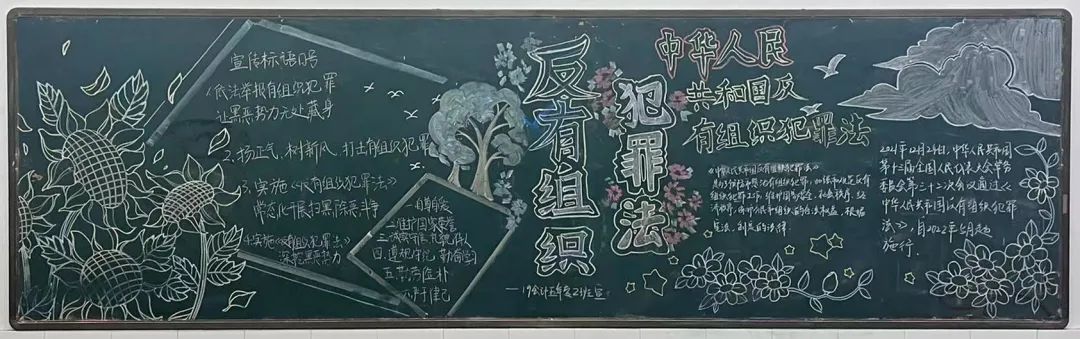 宣传标语口号
依法举报有组织犯罪
让黑恶势力无处藏身
2、扬正气、树新风、打击有组织犯罪
3、实施《反有组织犯罪法》
常态化开展扫黑除恶斗争
4、实施《反有组织犯罪法》
深挖黑恶势力
一、自尊自爱
二、维护国家荣誉
三、诚实守信、礼貌待人
四、遵规守纪、勤奋学习
五、勤劳俭朴
六、严于律己
反有组织
犯罪法
——19会计五年贯2班宣
中华人民
共和国反
有组织犯罪法
《中华人民共和国反有组织犯罪法》
是为了预防和惩治有组织犯罪,加强和规范反有
组织犯罪工作,维护国家安全、社会秩序、经
济秩序,保护公民和组织的合法权益,根据
宪法,制定的法律。
2021年12月24日,中华人民共和国
第十三届全国人民代表大会常务
委员会第三十二次会议通过《
中华人民共和国反有组织犯罪
法》,自2022年5月起
施行.